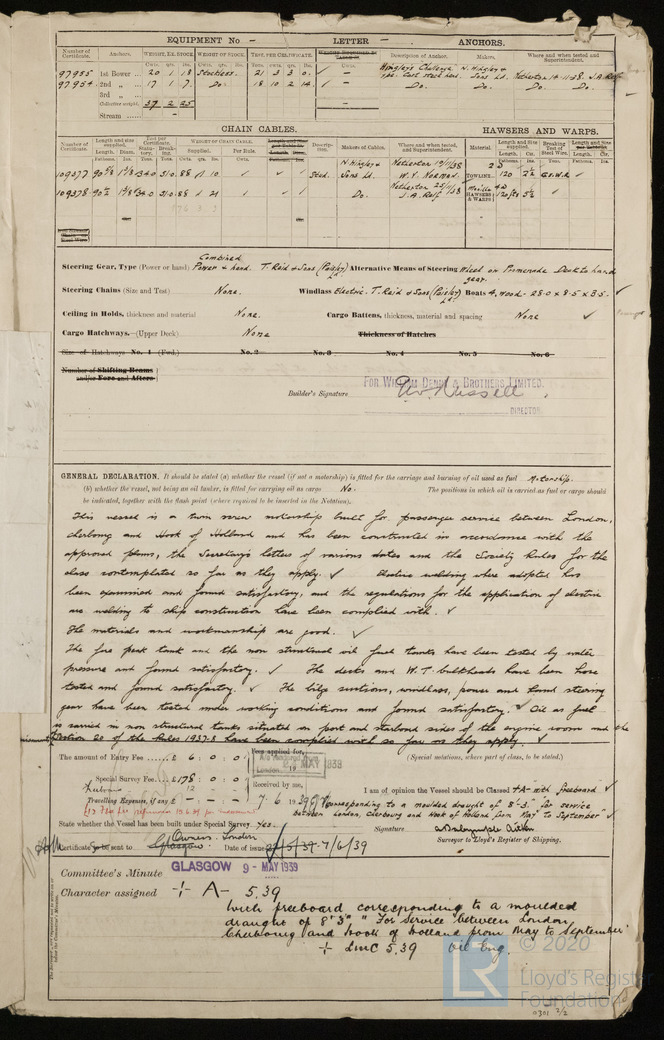 EQUIPMENT No — LETTER — ANCHORS.
Number of Certificate. Anchors. WEIGHT, EX. STOCK. WEIGHT OF STOCK. TEST, PER CERTIFICATE. Description of Anchor. Makers. Where and when tested and Superintendent.
Cwts. qrs. lbs. Cwts. qrs. lbs. Tons. cwts. qrs. lbs. Cwts.
97955 1st Bower 20 1 18 Stockless. 21 3 3 0 Hingley's Challenge N. Hingley & Sons Ld. Netherton 14.11.38. J.A. Relf
97954 2nd „ 17 1 7 Do. 18 10 2 14 Do. Do. Do. Do.
3rd „
Collective weight. 37 2 25
Stream
CHAIN CABLES. HAWSERS AND WARPS.
Number of Certificate. Length and size supplied. Test per Certificate. WEIGHT OF CHAIN CABLE. Description. Makers of Cables. Where and when tested, and Superintendent. Material. Length and Size supplied. Breaking Test of Steel Wire.
Fathoms. Diam. Supplied. Per Rule.
109377 Stud. N. Hingley & Sons Ld. Netherton 19/11/38 W.Y. Norman. TOWLINE 120 2½
109378 Do. Netherton J.A. Relf HAWSERS & WARPS
Combined
Steering Gear, Type (Power or hand) Power & hand. T. Reid & Sons (Paisley) Alternative Means of Steering Wheel on Promenade Deck to hand gear.
Steering Chains (Size and Test) None. Windlass Electric. T. Reid & Sons (Paisley) Ld. Boats 4, wood - 28.0 x 8.5 x 3.5.
Ceiling in Holds, thickness and material None. Cargo Battens, thickness, material and spacing None
Cargo Hatchways.—(Upper Deck) None Thickness of Hatches
Size of Hatchways No. 1 (Fwd.) No. 2 No. 3 No. 4 No. 5 No. 6
Number of Shifting Beams and/or Fore and Afters
FOR WILLIAM DENNY & BROTHERS LIMITED.
Builder's Signature
DIRECTOR
GENERAL DECLARATION. It should be stated (a) whether the vessel (if not a motorship) is fitted for the carriage and burning of oil used as fuel Motorship.
(b) whether the vessel, not being an oil tanker, is fitted for carrying oil as cargo No. The positions in which oil is carried as fuel or cargo should
be indicated, together with the flash point (where required to be inserted in the Notation).
This vessel is a twin screw motorship built for passenger service between London,
Cherbourg and Hook of Holland and has been constructed in accordance with the
approved plans, the Secretary's letters of various dates and the Society Rules for the
class contemplated so far as they apply. Electric welding where adopted has
been examined and found satisfactory, and the regulations for the application of electric
arc welding to ship construction have been complied with.
The materials and workmanship are good.
The fore peak tank and the non structural oil fuel tanks have been tested by water
pressure and found satisfactory. The decks and W.T. bulkheads have been hose
tested and found satisfactory. The bilge suctions, windlass, power and hand steering
gear have been tested under working conditions and found satisfactory. Oil as fuel
is carried in non structural tanks situated on port and starboard sides of the engine room and the
Section 20 of the Rules 1937-8 have been complied with so far as they apply.
The amount of Entry Fee £ 6 : 0 : 0 Fees applied for, (Special notations, where part of class, to be stated.)
MAY 1939
Special Survey Fee £178 : 0 : 0 Received by me, I am of opinion the Vessel should be Classed +A- with freeboard
Travelling Expenses, if any £ — : — : — 7. 6. 1939 "corresponding to a moulded draught of 8'-3" "for service
between London, Cherbourg and Hook of Holland from May to September"
State whether the Vessel has been built under Special Survey Yes. Signature
Surveyor to Lloyd's Register of Shipping.
Owners London
Certificate to be sent to Glasgow. Date of issue 7/6/39
Committee's Minute GLASGOW 9 - MAY 1939
Character assigned + A - 5,39
With freeboard corresponding to a moulded
draught of 8'3" "For Service between London,
Cherbourg and Hook of Holland from May to September"
+ LMC 5,39 Oil Eng.
© 2020
LR
Lloyd's Register
Foundation
0301 2/2